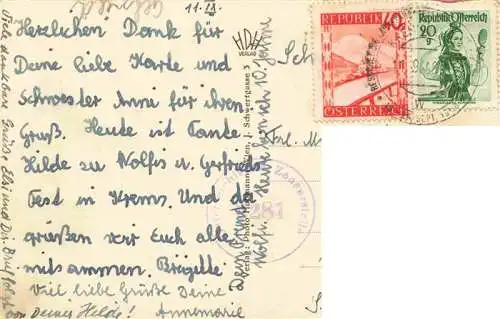 11. IX.
Herzlichen Dank für
Deine liebe Karte und
Schwester Anne für ihren
Gruß. Heute ist Tante
Hilde zu Wolfis u. Gerfrieds
Fest in Krems. Und da
grüßen wir Euch alle
mitsammen. Brigitte
Viel liebe Grüße Deine
Annemarie
von Deiner Hilde!
Viele dankbare Grüße Elsi und
Wolfi.
HDH
VERLAG
Verlag: Photo
Wien, J. Schwertgasse 3
Frl. M
281
REPUBLIK
40
ÖSTERREICH
Republik Österreich
20
g